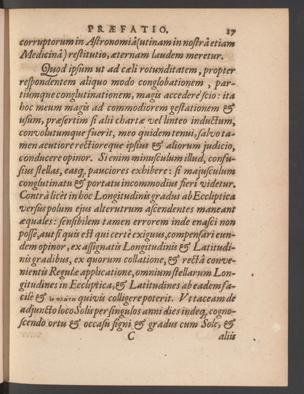 PRÆFATIO. 17
corruptorum in Astronomiâ (utinam in nostrâ etiam
Medicinâ) restitutio, æternam laudem meretur.
Quod ipsum ut ad cæli rotunditatem, propter
respondentem aliquo modo conglobationem, par-
tiumque conglutinationem, magis accedere scio: ita
hoc meum magis ad commodiorem gestationem &
usum, præsertim si alii chartæ vel linteo inductum,
convolutumque fuerit, meo quidem tenui, salvo ta-
men acutiore rectioreque ipsius & aliorum judicio,
conducere opinor. Si enim minusculum illud, confu-
sius stellas, easq, pauciores exhibere: si majusculum
conglutinatu & portatu incommodius fieri videtur.
Contrà licèt in hoc Longitudinis gradus ab Eccliptica
versus polum ejus alterutrum ascendentes maneant
æquales: sensibilem tamen errorem inde enasci non
posse, aut si quis est qui certè exiguus, compensari eun-
dem opinor, ex assignatis Longitudinis & Latitudi-
nis gradibus, ex quorum collatione, & rectâ conve-
nientis Regulæ applicatione, omnium stellarum Lon-
gitudines in Eccliptica, & Latitudines ab eadem fa-
cilè & quivis colligere poterit. Ut taceam de
adjuncto loco Solis per singulos anni dies indeq, cogno-
scendo ortu & occasu signi & gradus cum Sole, &
C aliis